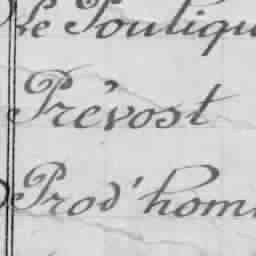 Le Poutiqu
Prévost
Prod'hom